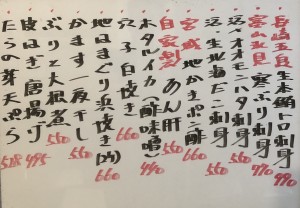 長崎五島 生本鮪トロ刺身 990
富山氷見 寒ぶり刺身 770
活・オオモンハタ刺身
活・生北海ダコ刺身 550
宮城 地かきポン酢 550
自家製 あん肝
ホタルイカ(酢味噌) 440
穴子白焼き 660
地はまぐり浜焼き(大) 660
かます一夜干し 550
ぶりと大根煮 550
皮はぎ唐揚げ 495
たらの芽天ぷら 528